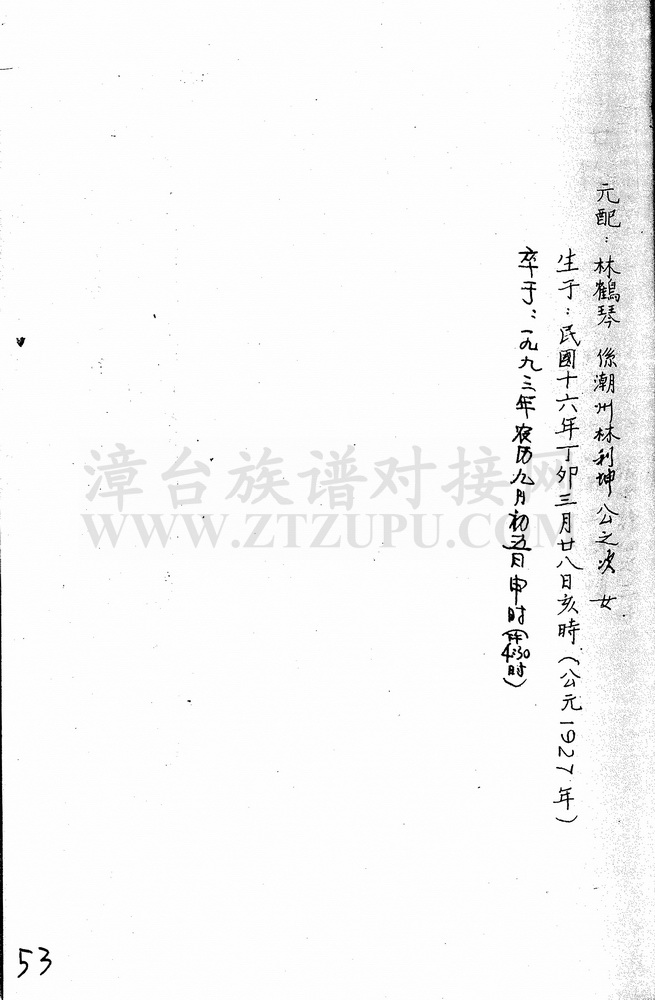 元配：林鶴琴 係潮州林利坤公之次女
生于：民國十六年丁卯三月廿八日亥時（公元1927年）
卒于：一九九三年农历九月初五日申时（下午4:30时）
漳台族谱对接网
WWW.ZTZUPU.COM
53